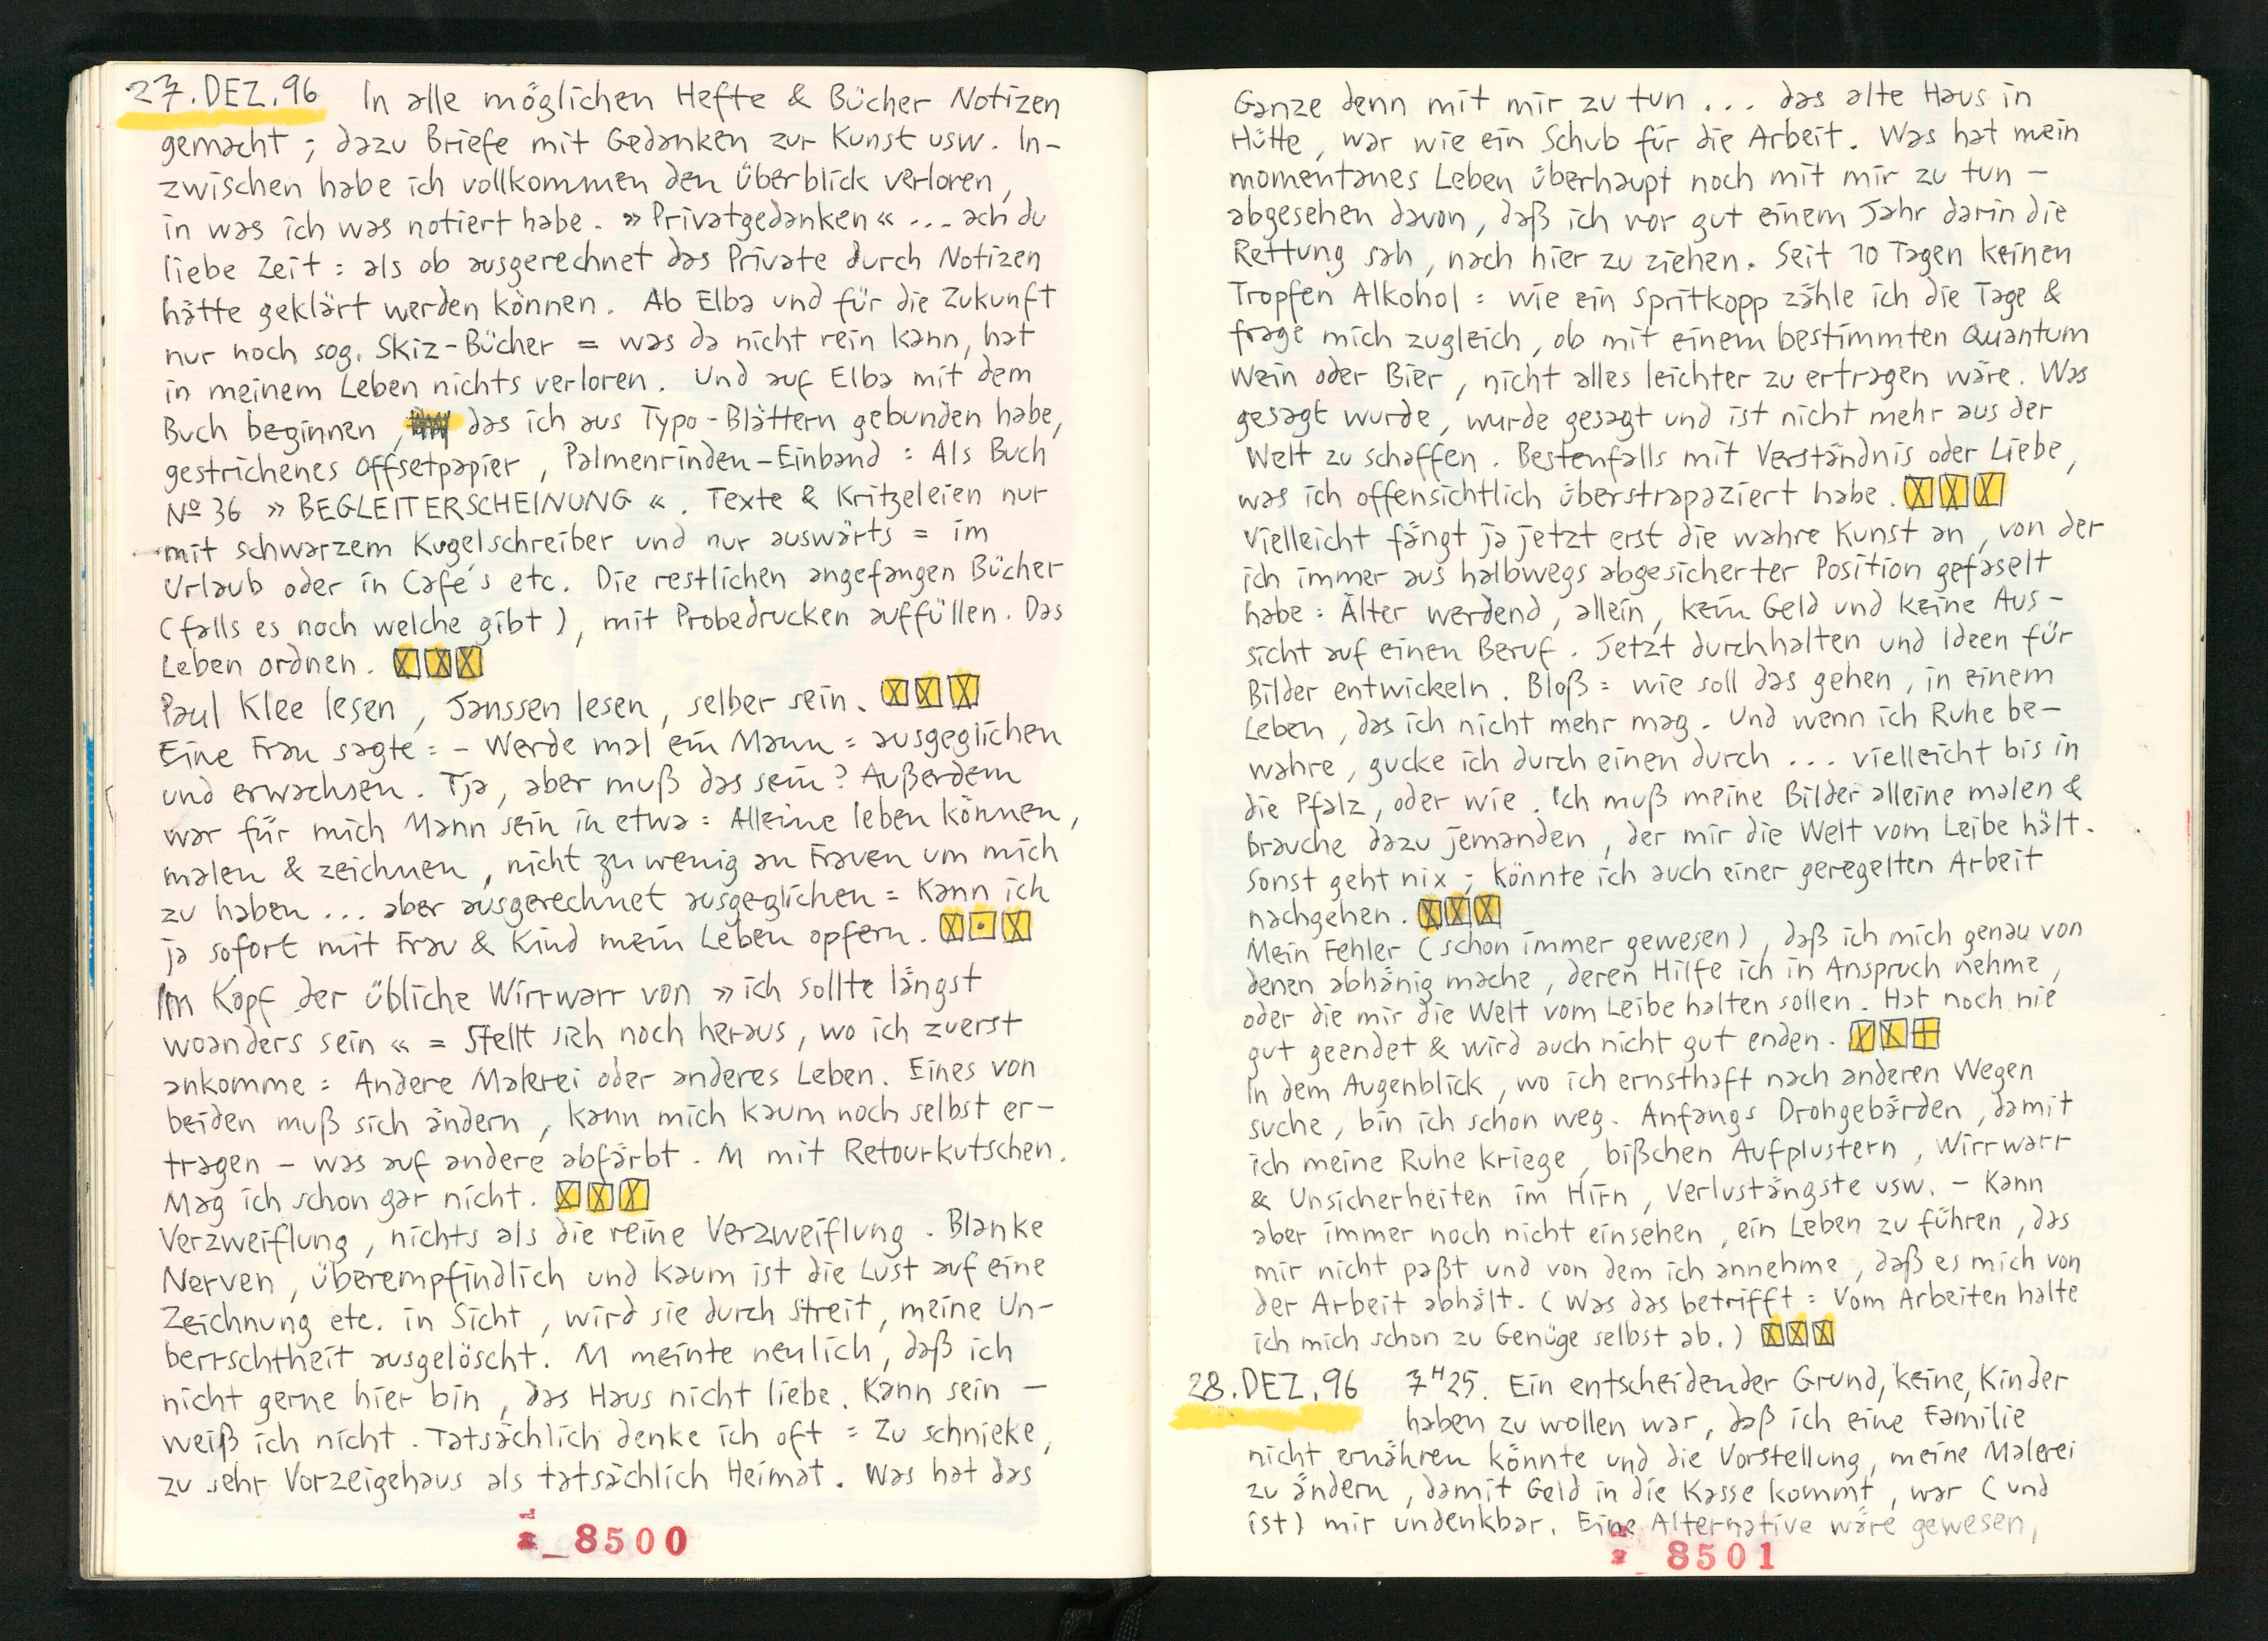 27. DEZ. 96 In alle möglichen Hefte & Bücher Notizen
gemacht ; dazu Briefe mit Gedanken zur Kunst usw. In-
zwischen habe ich vollkommen den Überblick verloren,
in was ich was notiert habe. » Privatgedanken « ... ach du
liebe Zeit : als ob ausgerechnet das Private durch Notizen
hätte geklärt werden können. Ab Elba und für die Zukunft
nur noch sog. Skiz-Bücher = was da nicht rein kann, hat
in meinem Leben nichts verloren. Und auf Elba mit dem
Buch beginnen, das ich aus Typo-Blättern gebunden habe,
gestrichenes Offsetpapier, Palmenrinden-Einband : Als Buch
Nº 36 » BEGLEITERSCHEINUNG «. Texte & Kritzeleien nur
mit schwarzem Kugelschreiber und nur auswärts = im
Urlaub oder in Café's etc. Die restlichen angefangen Bücher
(falls es noch welche gibt), mit Probedrucken auffüllen. Das
Leben ordnen.
Paul Klee lesen, Janssen lesen, selber sein.
Eine Frau sagte : - Werde mal ein Mann = ausgeglichen
und erwachsen. Tja, aber muß das sein? Außerdem
war für mich Mann sein in etwa : Alleine leben können,
malen & zeichnen, nicht zu wenig an Frauen um mich
zu haben ... aber ausgerechnet ausgeglichen = Kann ich
ja sofort mit Frau & Kind mein Leben opfern.
Im Kopf der übliche Wirrwarr von » ich sollte längst
woanders sein « = Stellt sich noch heraus, wo ich zuerst
ankomme : Andere Malerei oder anderes Leben. Eines von
beiden muß sich ändern, kann mich kaum noch selbst er-
tragen - was auf andere abfärbt. M mit Retourkutschen.
Mag ich schon gar nicht.
Verzweiflung, nichts als die reine Verzweiflung. Blanke
Nerven, überempfindlich und kaum ist die Lust auf eine
Zeichnung etc. in Sicht, wird sie durch Streit, meine Un-
berrschtheit ausgelöscht. M meinte neulich, daß ich
nicht gerne hier bin, das Haus nicht liebe. Kann sein -
weiß ich nicht. Tatsächlich denke ich oft : Zu schnieke,
zu sehr Vorzeigehaus als tatsächlich Heimat. Was hat das
8500
Ganze denn mit mir zu tun ... das alte Haus in
Hütte, war wie ein Schub für die Arbeit. Was hat mein
momentanes Leben überhaupt noch mit mir zu tun -
abgesehen davon, daß ich vor gut einem Jahr darin die
Rettung sah, nach hier zu ziehen. Seit 10 Tagen keinen
Tropfen Alkohol : wie ein Spritkopp zähle ich die Tage &
frage mich zugleich, ob mit einem bestimmten Quantum
Wein oder Bier, nicht alles leichter zu ertragen wäre. Was
gesagt wurde, wurde gesagt und ist nicht mehr aus der
Welt zu schaffen. Bestenfalls mit Verständnis oder Liebe,
was ich offensichtlich überstrapaziert habe.
Vielleicht fängt ja jetzt erst die wahre Kunst an, von der
ich immer aus halbwegs abgesicherter Position gefaselt
habe : Älter werdend, allein, kein Geld und keine Aus-
sicht auf einen Beruf. Jetzt durchhalten und Ideen für
Bilder entwickeln. Bloß : wie soll das gehen, in einem
Leben, das ich nicht mehr mag. Und wenn ich Ruhe be-
wahre, gucke ich durch einen durch ... vielleicht bis in
die Pfalz, oder wie. Ich muß meine Bilder alleine malen &
brauche dazu jemanden, der mir die Welt vom Leibe hält.
Sonst geht nix ; könnte ich auch einer geregelten Arbeit
nachgehen.
Mein Fehler (schon immer gewesen), daß ich mich genau von
denen abhänig mache, deren Hilfe ich in Anspruch nehme,
oder die mir die Welt vom Leibe halten sollen. Hat noch nie
gut geendet & wird auch nicht gut enden.
In dem Augenblick, wo ich ernsthaft nach anderen Wegen
suche, bin ich schon weg. Anfangs Drohgebärden, damit
ich meine Ruhe kriege, bißchen Aufplustern, Wirrwarr
& Unsicherheiten im Hirn, Verlustängste usw. - Kann
aber immer noch nicht einsehen, ein Leben zu führen, das
mir nicht paßt und von dem ich annehme, daß es mich von
der Arbeit abhält. (Was das betrifft : Vom Arbeiten halte
ich mich schon zu Genüge selbst ab.)
28. DEZ. 96 7ᴴ25. Ein entscheidender Grund, keine, Kinder
haben zu wollen war, daß ich eine Familie
nicht ernähren könnte und die Vorstellung, meine Malerei
zu ändern, damit Geld in die Kasse kommt, war (und
ist) mir undenkbar. Eine Alternative wäre gewesen,
8501